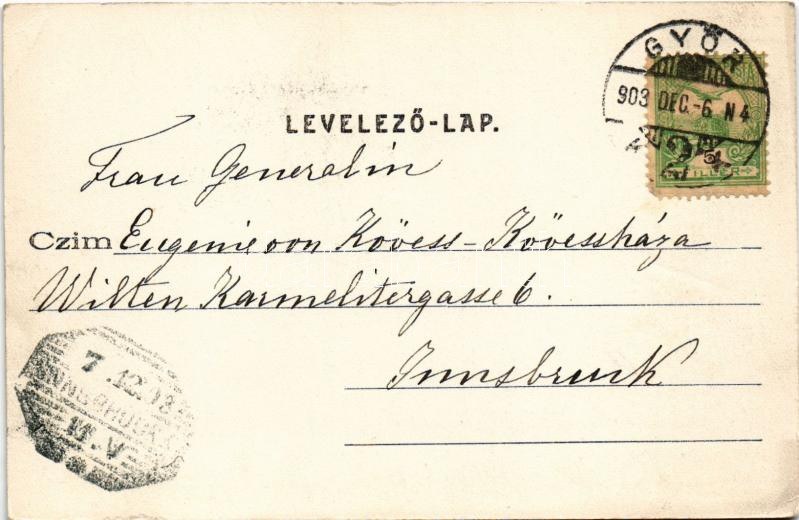 GYŐR
903 DEC.-6 N4
5
FILLÉR
LEVELEZŐ-LAP.
Frau Generalin
Czim Eugenie von Kövess-Kövessháza
Wilten Karmelitergasse 6.
Innsbruck
7.12.03
INNSBRUCK
11.V